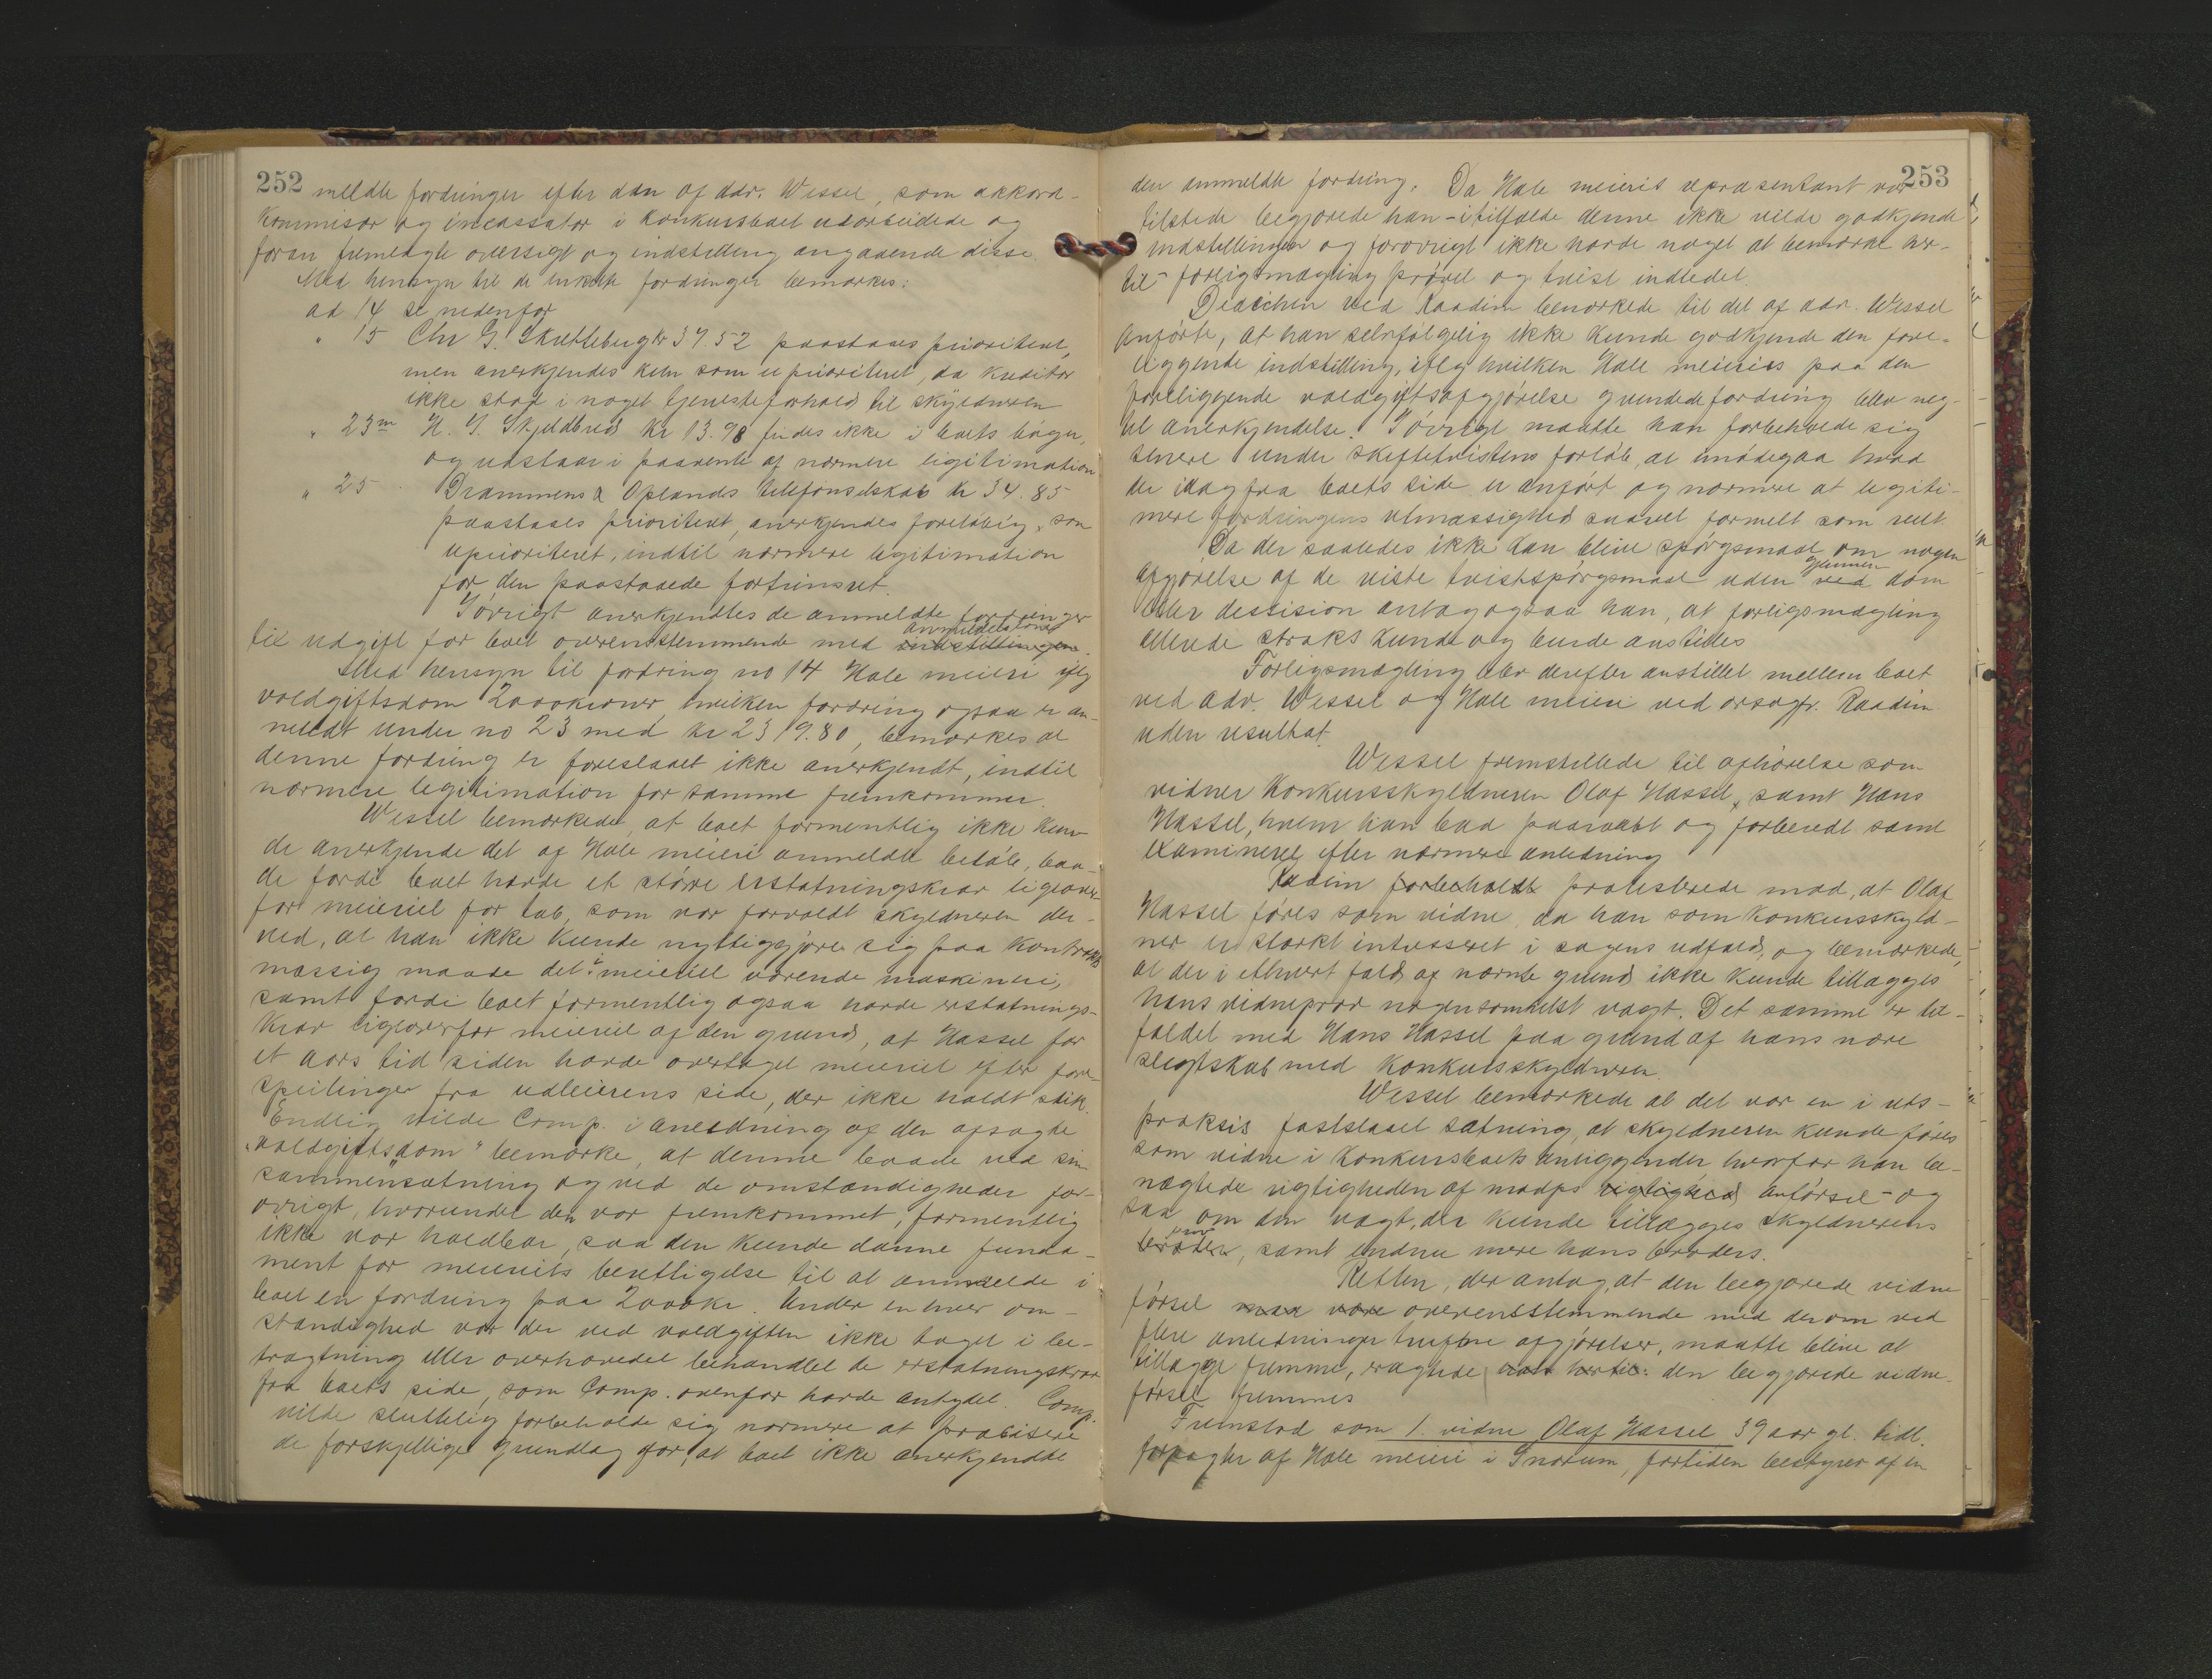 252
meldte fordringer efter den af adv. Wessel, som akkord-
kommisær og incassator i konkursboet udarbeidede og
foran fremlagte oversigt og indstilling angaaende disse.
Med hensyn til de enkelte fordringer bemærkes:
ad 14 se nedenfor
" 15 Chr G. Skutteberg kr 37.52 paastaaes prioritert,
men anerkjendes kun som uprioritert, da kreditor
ikke stod i noget tjenesteforhold til skyldneren
" 23 N. G. Skjeldbred kr 13.98 findes ikke i boets bøger,
og udstaar i paavente af nærmere legitimation
" 25 Drammens & Oplands telefonselskab kr 34.85
paastaaes prioritert, anerkjendes foreløbig som
uprioritert, indtil nærmere legitimation
for den paastaaede fortrinsret.
Iøvrigt anerkjendtes de anmeldte fordringer
til udgift for boet overensstemmende med indstillingen.
Med hensyn til fordring no 14 Hole meieri iflg
voldgiftsdom 2000 kroner, hvilken fordring ogsaa er an-
meldt under no 23 med kr 2319.80, bemærkes at
denne fordring er foreslaaet ikke anerkjendt, indtil
nærmere legitimation for samme fremkommer.
Wessel bemærkede, at boet formentlig ikke kun-
de anerkjende det af Hole meieri anmeldte beløb, baa-
de fordi boet havde et større erstatningskrav ligeover-
for meieriet for tab, som var forvoldt skyldneren der-
ved, at han ikke kunde nyttiggjøre sig paa kontrakts
mæssig maade det i meieriet værende maskineri,
samt fordi boet formentlig ogsaa havde erstatnings-
krav ligeoverfor meieriet af den grund, at Hassel for
et aars tid siden havde overtaget meieriet efter fore-
speilinger fra udleierens side, der ikke holdt stik.
Endlig vilde Comp. i anledning af den afsagte
"voldgiftsdom" bemærke, at denne baade ved sin
sammensætning og ved de omstændigheder for-
øvrigt, hvorunder den var fremkommet, formentlig
ikke var holdbar, saa den kunde danne funda-
ment for meieriets berettigelse til at anmelde i
boet en fordring paa 2000 kr. Under enhver om-
stændighed var der ved voldgiften ikke taget i be-
tragtning eller overhovedet behandlet de erstatningskrav
fra boets side, som Comp. ovenfor havde antydet. Comp.
vilde sluttelig forbeholde sig nærmere at præcisere
de forskjellige grundlag for, at boet ikke anerkjendte
253
den anmeldte fordring. Da Hole meieris repræsentant var
tilstede begjærede han - i tilfælde denne ikke vilde godkjende
indstillingen og forøvrigt ikke havde noget at bemærke her-
til - forligsmægling prøvet og tvist indledet.
ved Raadim bemærkede til det af adv. Wessel
anførte, at han selvfølgelig ikke kunde godkjende den fore-
liggende indstilling, iflg hvilken Hole meieris paa den
foreliggende voldgiftsafgjørelse grundede fordring blev neg-
tet anerkjendelse. Iøvrigt maatte han forbeholde sig
senere under skiftetvistens forløb, at imødegaa hvad
der idag fra boets side er anført og nærmere at legiti-
mere fordringens retmæssighed saavel formelt som reelt.
Da der saaledes ikke kan blive spørgsmaal om nogen
afgjørelse af de reiste tvistspørgsmaal uden gjennem ved dom
eller descision antog ogsaa han, at forligsmægling
allerede straks kunde og burde anstilles
Forligsmægling blev derefter anstillet mellem boet
ved adv. Wessel og Hole meieri ved orsagfr. Raadim
uden resultat.
Wessel fremstillede til afhørelse som
vidner konkursskyldneren Olaf Hassel, samt Hans
Hassel, hvem han bad paaraabt og forberedt samt
examineret efter nærmere anledning
Raadim forbeholdt protesterede mod, at Olaf
Hassel føres som vidne, da han som konkursskyld-
ner er stærkt interesseret i sagens udfald, og bemærkede,
at der i ethvert fald af nævnte grund ikke kunde tillægges
hans vidneprov nogensomhelst vægt. Det samme er til-
fældet med Hans Hassel paa grund af hans nære
slegtskab med konkursskyldneren.
Wessel bemærkede at det var en i rets-
praksis fastslaaet sætning, at skyldneren kunde føres
som vidne i konkursboets anliggender, hvorfor han be-
nægtede rigtigheden af modps rigtighed anførsel - og
saa om den vægt, der kunde tillægges skyldnerens
prov, samt endnu mere hans broders.
Retten, der antog, at den begjærede vidne
førsel maa være overensstemmende med derom ved
flere anledninger trufne afgjørelser, maatte blive at
tillægge fremme, eragtede: den begjærede vidne-
førsel fremmes
Fremstod som 1. vidne Olaf Hassel 39 aar gl. tidl.
forpagter af Hole meieri i Snarum, fortiden bestyrer af en